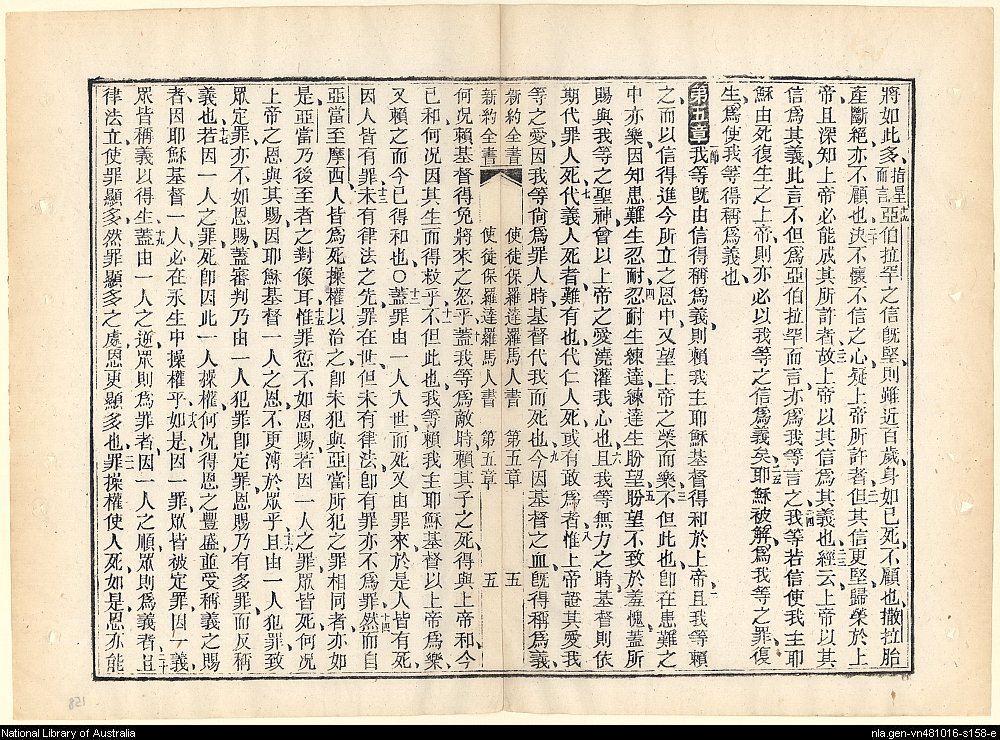 將如此多指星而言十九亞伯拉罕之信旣堅則雖近百歲身如已死不顧也撒拉胎
產斷絕亦不顧也二十決不懷不信之心疑上帝所許者但其信更堅歸榮於上
帝且深知上帝必能成其所許者故上帝以其信爲其義也經云上帝以其
信爲其義此言不但爲亞伯拉罕而言亦爲我等言之二四我等若信使我主耶
穌由死復生之上帝則亦必以我等之信爲義矣二五耶穌被解爲我等之罪復
生爲使我等得稱爲義也
第五章一節我等旣由信得稱爲義則賴我主耶穌基督得和於上帝二且我等賴
之而以信得進今所立之恩中又望上帝之榮而樂三不但此也卽在患難之
中亦樂因知患難生忍耐四忍耐生練達練達生盼望五盼望不致於羞愧蓋所
賜與我等之聖神曾以上帝之愛澆灌我心也六且我等無力之時基督則依
期代罪人死七代義人死者難有也代仁人死或有敢爲者八惟上帝證其愛我
等之愛因我等尙爲罪人時基督代我而死也九今因基督之血旣得稱爲義
新約全書 使徒保羅達羅馬人書 第五章 五
新約全書 使徒保羅達羅馬人書 第五章 五
何況賴基督得免將來之怒乎十蓋我等爲敵時賴其子之死得與上帝和今
已和何況因其生而得救乎十一不但此也我等賴我主耶穌基督以上帝爲樂
又賴之而今已得和也〇十二蓋罪由一人入世而死又由罪來於是人皆有死
因人皆有罪十三未有律法之先罪在世但未有律法卽有罪亦不爲罪十四然而自
亞當至摩西人皆爲死操權以治之卽未犯與亞當所犯之罪相同者亦如
是亞當乃後至者之對像耳十五惟罪愆不如恩賜若因一人之罪眾皆死何況
上帝之恩與其賜因耶穌基督一人之恩不更溥於眾乎十六且由一人犯罪致
眾定罪亦不如恩賜蓋審判乃由一人犯罪卽定罪恩賜乃有多罪而反稱
義也十七若因一人之罪死卽因此一人操權何況得恩之豐盛並受稱義之賜
者因耶穌基督一人必在永生中操權乎十八如是因一罪眾皆被定罪因一義
眾皆稱義以得生十九蓋由一人之逆眾則爲罪者因一人之順眾則爲義者二十且
律法立使罪顯多然罪顯多之處恩更顯多也二一罪操權使人死如是恩亦能
158
National Library of Australia
nla.gen-vn481016-s158-e